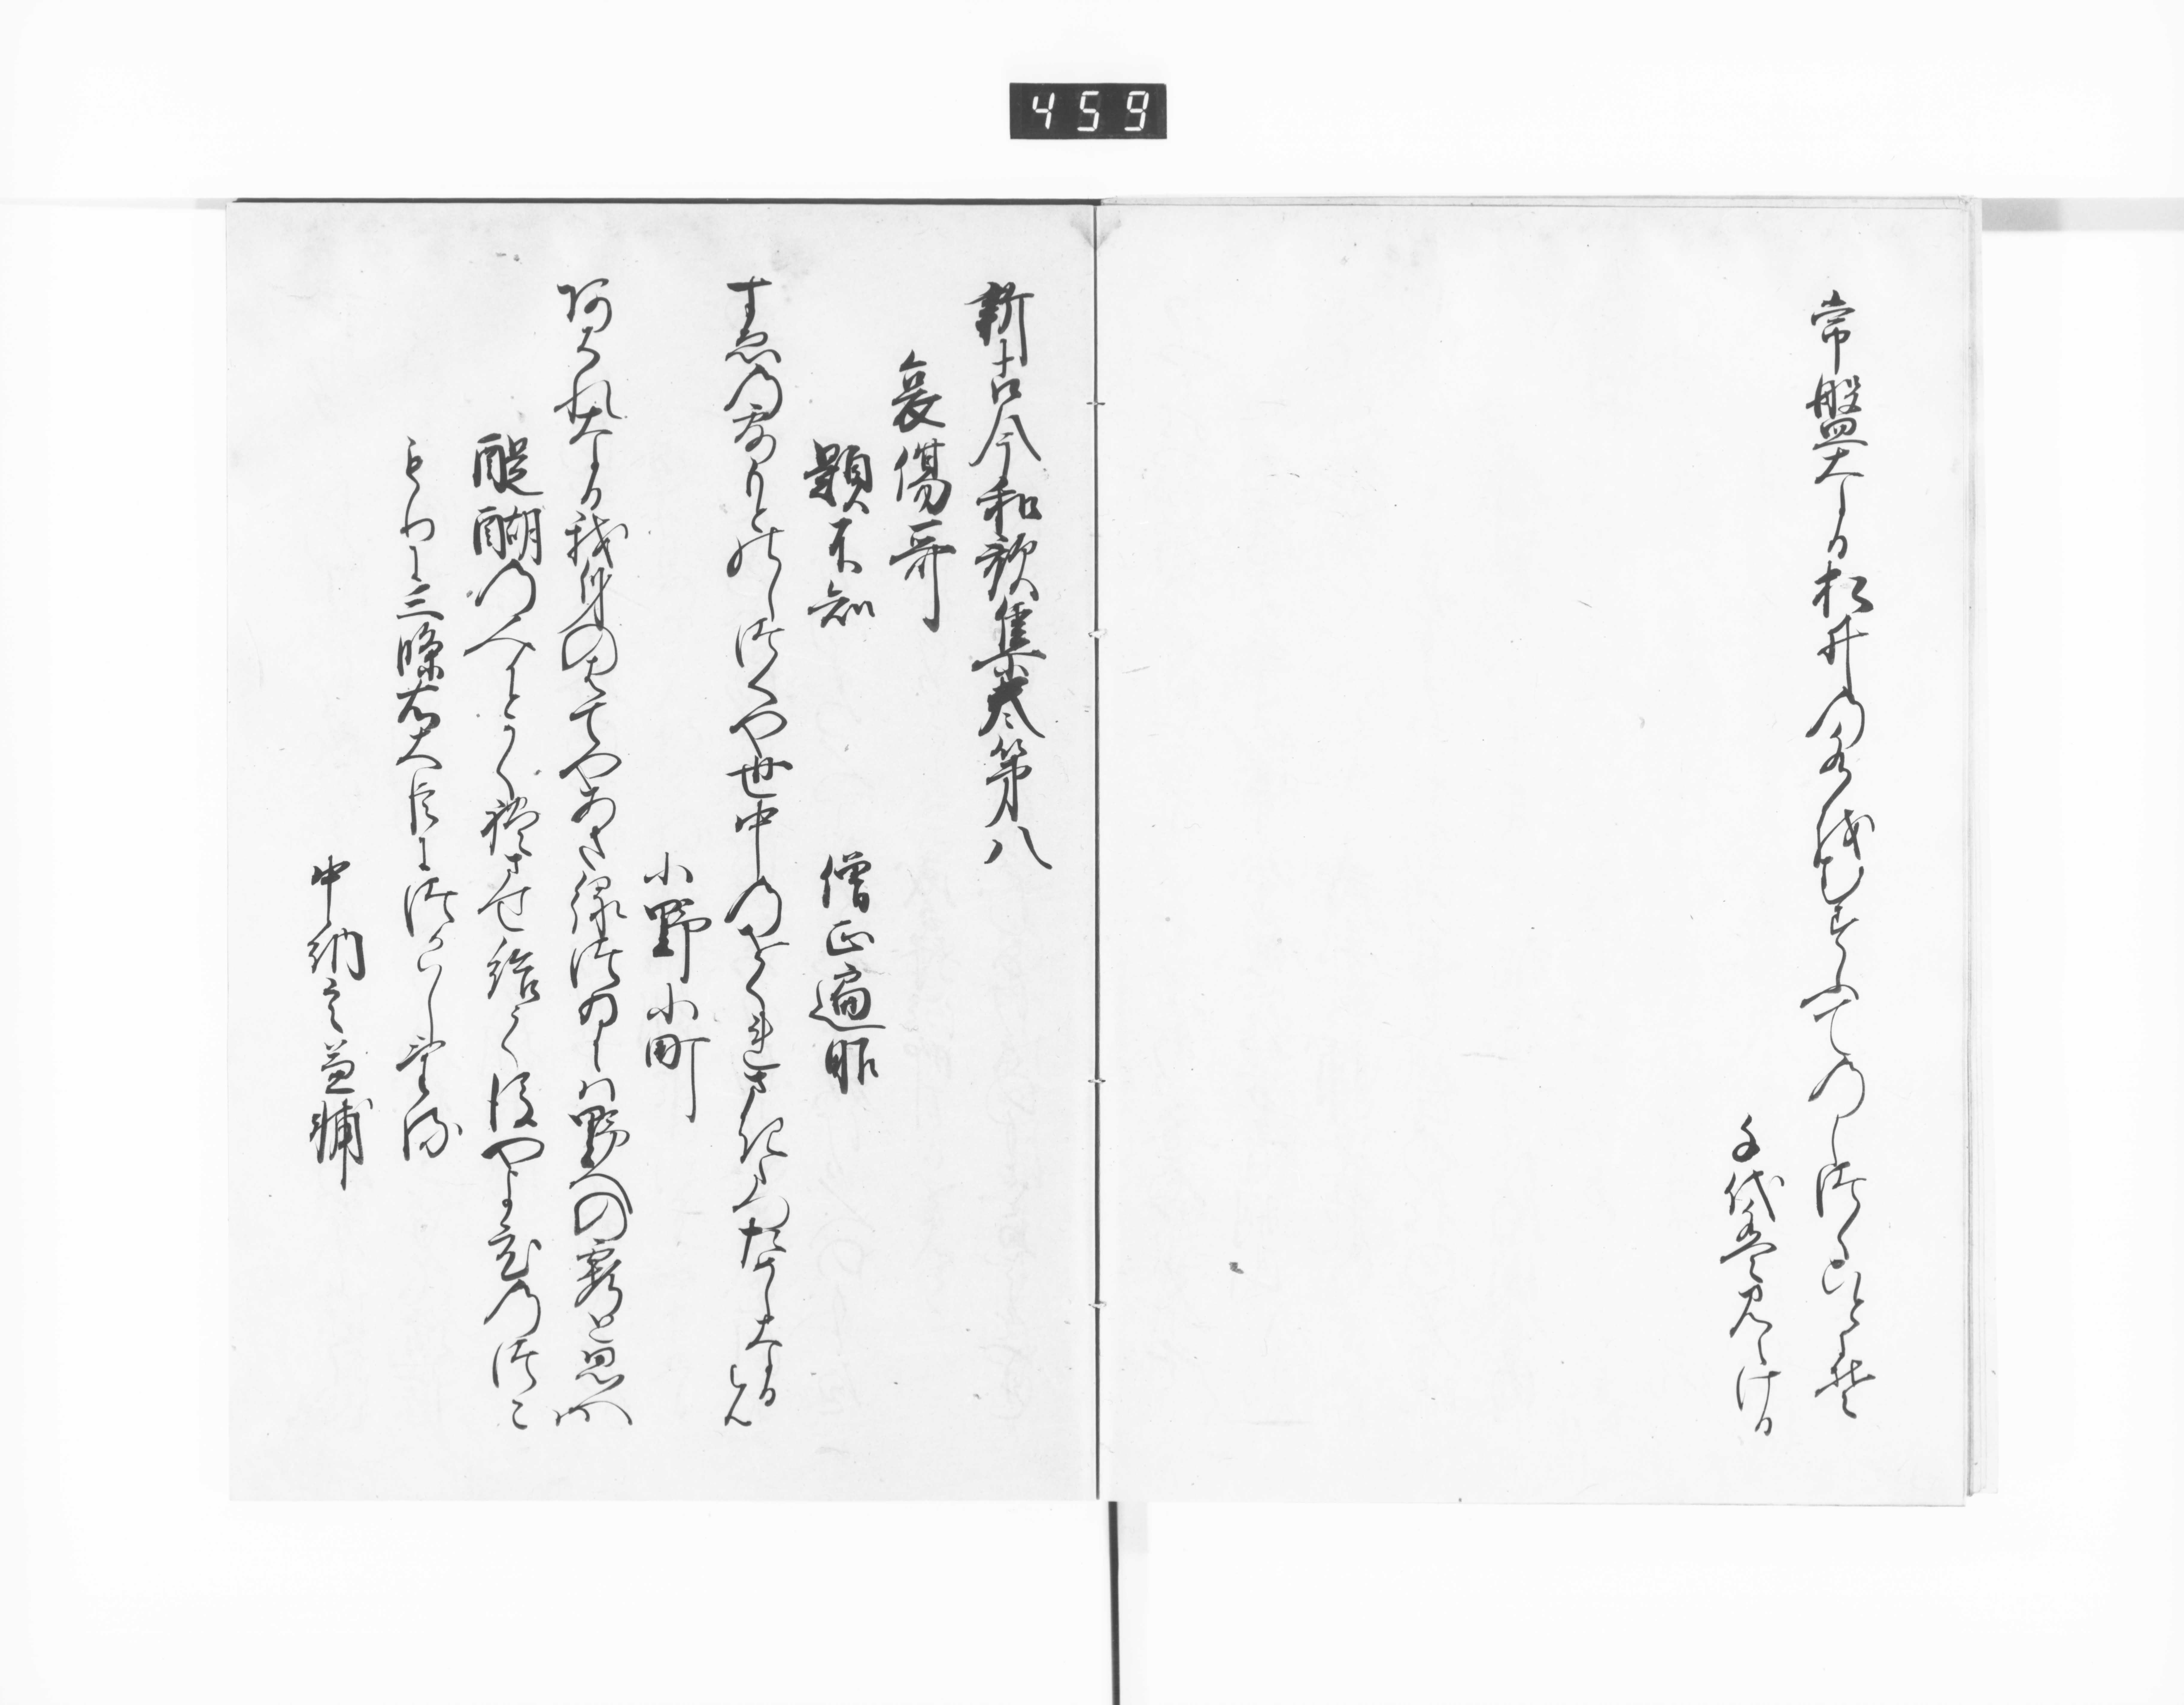 459
常盤なる松井の水をむすふてのしつくことにそ
千代は見えける
新古今和歌集巻第八
哀傷哥
題不知
僧正遍昭
すゑの露もとのしつくや世中のをくれさきたつためしなるらん
小野小町
あはれなり我身のはてやあさ緑つゐには野への霞と思へは
醍醐のみかとかくれさせ給てのちやよひのつこ
もりに三條右大臣につかはしける
中納言兼輔